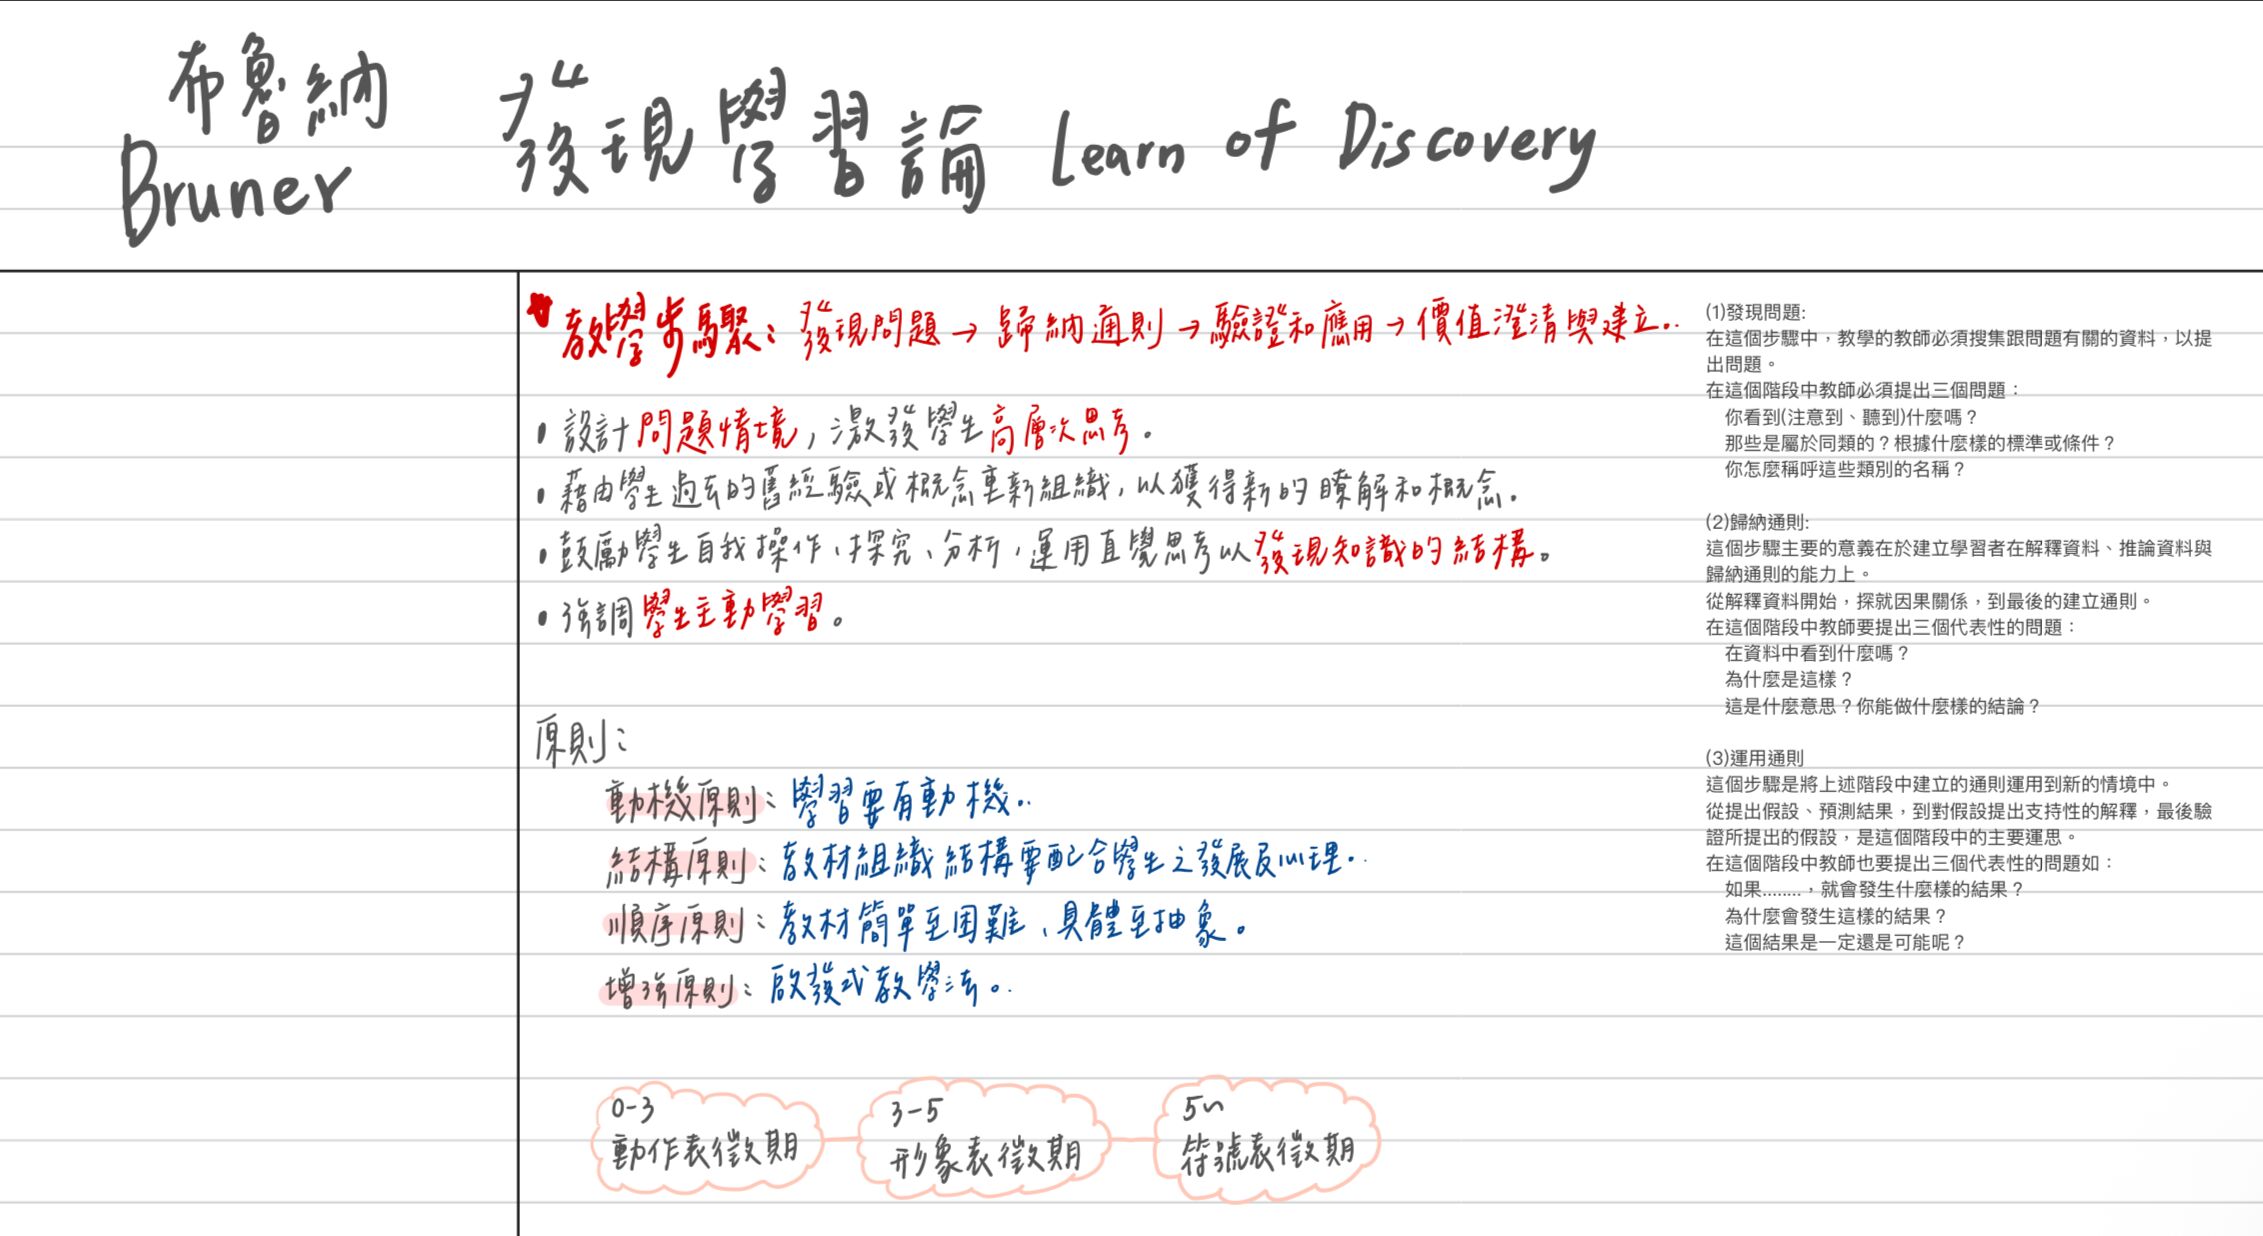 布魯納
Bruner
發現學習論 Learn of Discovery
教學步驟：發現問題→歸納通則→驗證和應用→價值澄清與建立..
• 設計問題情境，激發學生高層次思考。
• 藉由學生過去的舊經驗或概念重新組織，以獲得新的瞭解和概念.
• 鼓勵學生自我操作、探究、分析，運用直覺思考以發現知識的結構。
• 強調學生主動學習。
原則：
動機原則：學習要有動機..
結構原則：教材組織結構要配合學生之發展及心理..
順序原則：教材簡單至困難、具體至抽象。
增強原則：啟發式教學法。..
0-3
動作表徵期
3-5
形象表徵期
5~
符號表徵期
(1)發現問題:
在這個步驟中，教學的教師必須搜集跟問題有關的資料，以提
出問題。
在這個階段中教師必須提出三個問題：
你看到(注意到、聽到)什麼嗎？
那些是屬於同類的？根據什麼樣的標準或條件？
你怎麼稱呼這些類別的名稱？
(2)歸納通則:
這個步驟主要的意義在於建立學習者在解釋資料、推論資料與
歸納通則的能力上。
從解釋資料開始，探就因果關係，到最後的建立通則。
在這個階段中教師要提出三個代表性的問題：
在資料中看到什麼嗎？
為什麼是這樣？
這是什麼意思？你能做什麼樣的結論？
(3)運用通則
這個步驟是將上述階段中建立的通則運用到新的情境中。
從提出假設、預測結果，到對假設提出支持性的解釋，最後驗
證所提出的假設，是這個階段中的主要運思。
在這個階段中教師也要提出三個代表性的問題如：
如果........，就會發生什麼樣的結果？
為什麼會發生這樣的結果？
這個結果是一定還是可能呢？